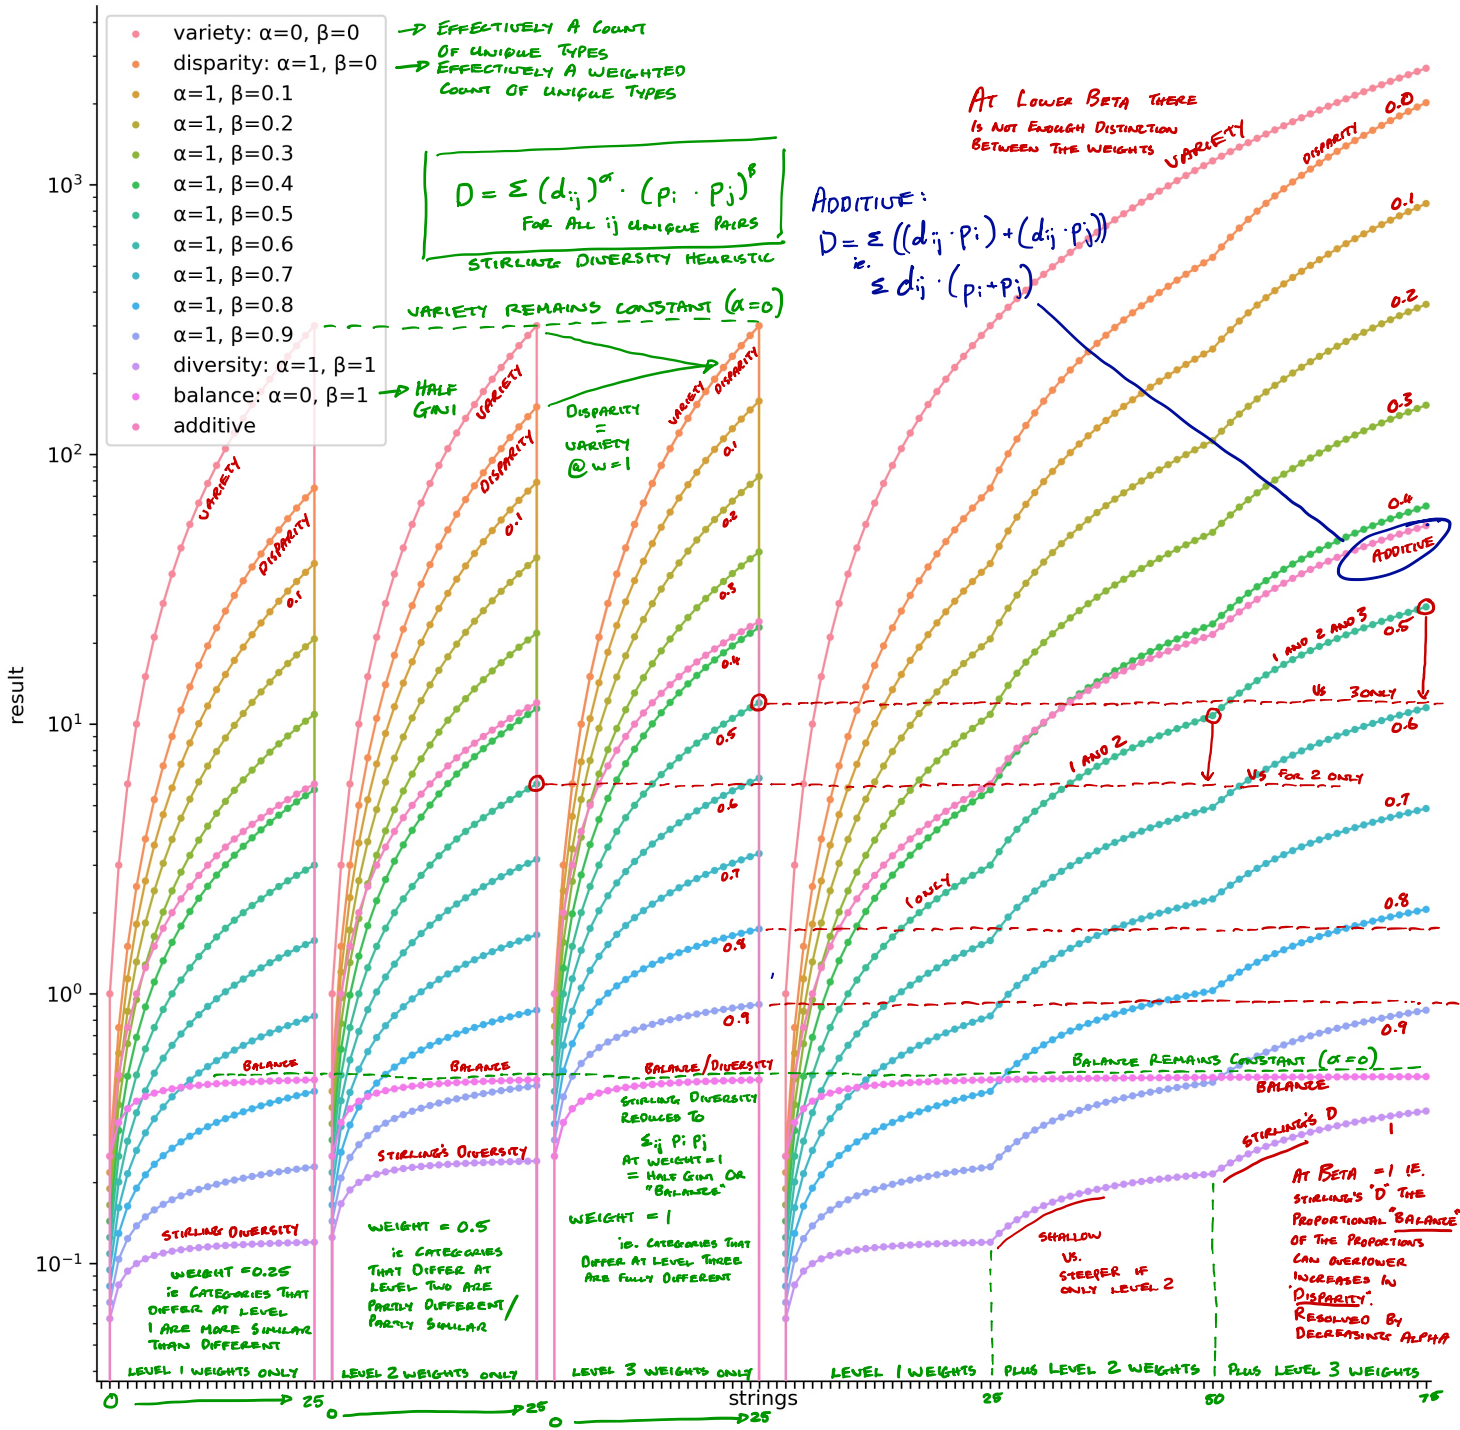 variety: α=0, β=0
disparity: α=1, β=0
α=1, β=0.1
α=1, β=0.2
α=1, β=0.3
α=1, β=0.4
α=1, β=0.5
α=1, β=0.6
α=1, β=0.7
α=1, β=0.8
α=1, β=0.9
diversity: α=1, β=1
balance: α=0, β=1
additive
→ EFFECTIVELY A COUNT
OF UNIQUE TYPES
→ EFFECTIVELY A WEIGHTED
COUNT OF UNIQUE TYPES
→ HALF
GINI
D = Σ (dij)^α · (pi · pj)^β
FOR ALL ij UNIQUE PAIRS
STIRLING DIVERSITY HEURISTIC
ADDITIVE:
D = Σ ((dij · pi) + (dij · pj))
ie.
Σ dij · (pi + pj)
AT LOWER BETA THERE
IS NOT ENOUGH DISTINCTION
BETWEEN THE WEIGHTS
VARIETY REMAINS CONSTANT (α=0)
DISPARITY
=
VARIETY
@ w=1
VARIETY
DISPARITY
0.1
VARIETY
DISPARITY
0.1
VARIETY
DISPARITY
0.1
0.2
0.3
0.4
0.5
0.6
0.7
0.8
0.9
VARIETY
DISPARITY
0.0
0.1
0.2
0.3
0.4
ADDITIVE
0.5
0.6
0.7
0.8
0.9
1 ONLY
1 AND 2
1 AND 2 AND 3
VS 3 ONLY
VS FOR 2 ONLY
BALANCE
BALANCE
BALANCE/DIVERSITY
BALANCE REMAINS CONSTANT (α=0)
BALANCE
STIRLING DIVERSITY
STIRLING'S DIVERSITY
STIRLING'S D
1
STIRLING DIVERSITY
REDUCES TO
Σij pi pj
AT WEIGHT=1
= HALF GINI OR
"BALANCE"
WEIGHT =0.25
ie CATEGORIES THAT
DIFFER AT LEVEL
1 ARE MORE SIMILAR
THAN DIFFERENT
WEIGHT = 0.5
ie CATEGORIES
THAT DIFFER AT
LEVEL TWO ARE
PARTLY DIFFERENT/
PARTLY SIMILAR
WEIGHT = 1
ie. CATEGORIES THAT
DIFFER AT LEVEL THREE
ARE FULLY DIFFERENT
SHALLOW
VS.
STEEPER IF
ONLY LEVEL 2
AT BETA =1 IE.
STIRLING'S "D" THE
PROPORTIONAL "BALANCE"
OF THE PROPORTIONS
CAN OVERPOWER
INCREASES IN
"DISPARITY".
RESOLVED BY
DECREASING ALPHA
LEVEL 1 WEIGHTS ONLY
LEVEL 2 WEIGHTS ONLY
LEVEL 3 WEIGHTS ONLY
LEVEL 1 WEIGHTS
PLUS LEVEL 2 WEIGHTS
PLUS LEVEL 3 WEIGHTS
0 → 25
0 → 25
0 → 25
25
50
75
strings
result
10³
10²
10¹
10⁰
10⁻¹